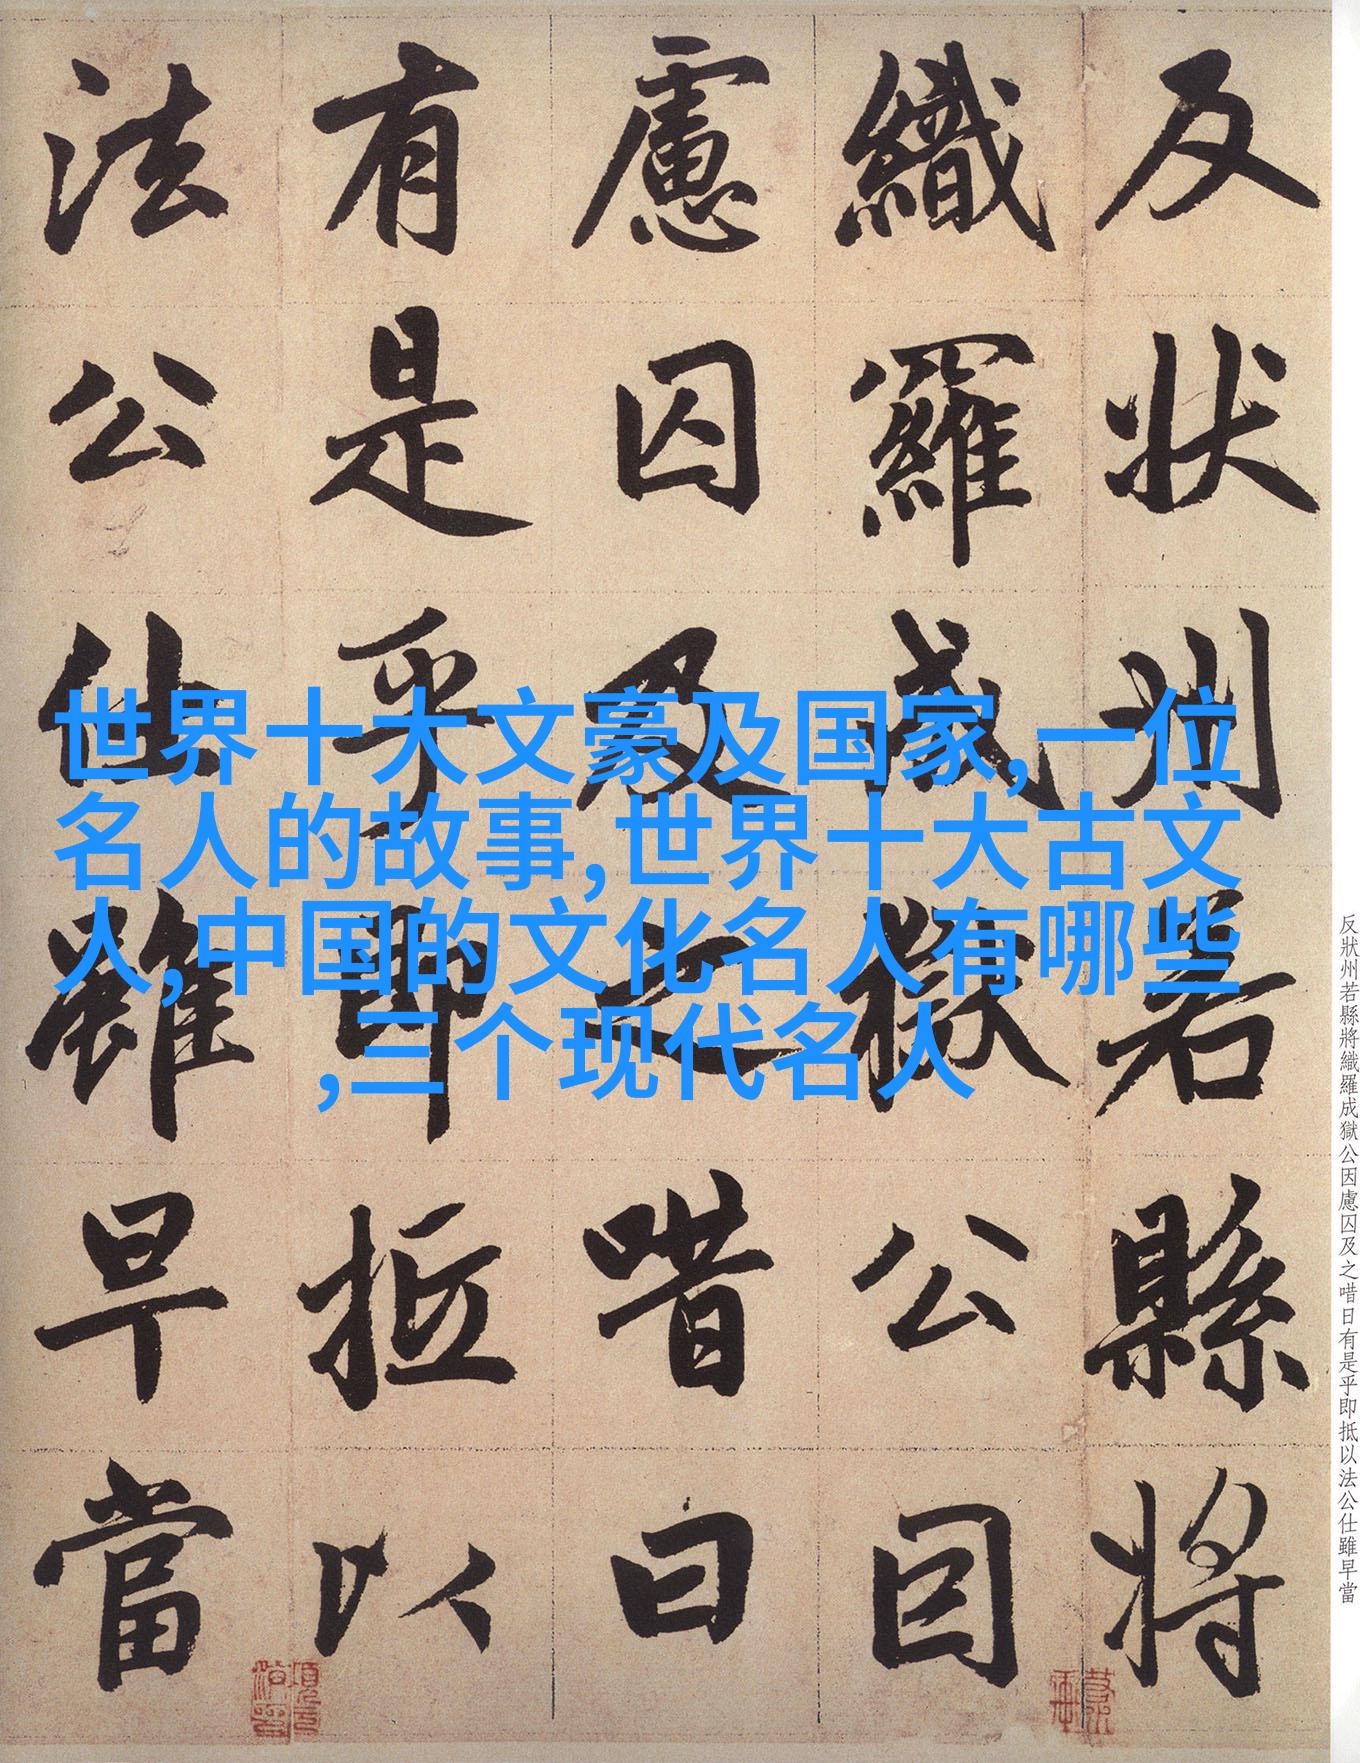 反状州若縣將
織羅成獄公因
慮囚及之唶曰
有是乎即抵以
法公仕雖早當
世界十大文豪及国家,一位
名人的故事,世界十大古文
人,中国的文化名人有哪些
,三个现代名人
反狀州若縣將織羅成獄公因慮囚及之唶日有是乎即抵以法公仕雖早當